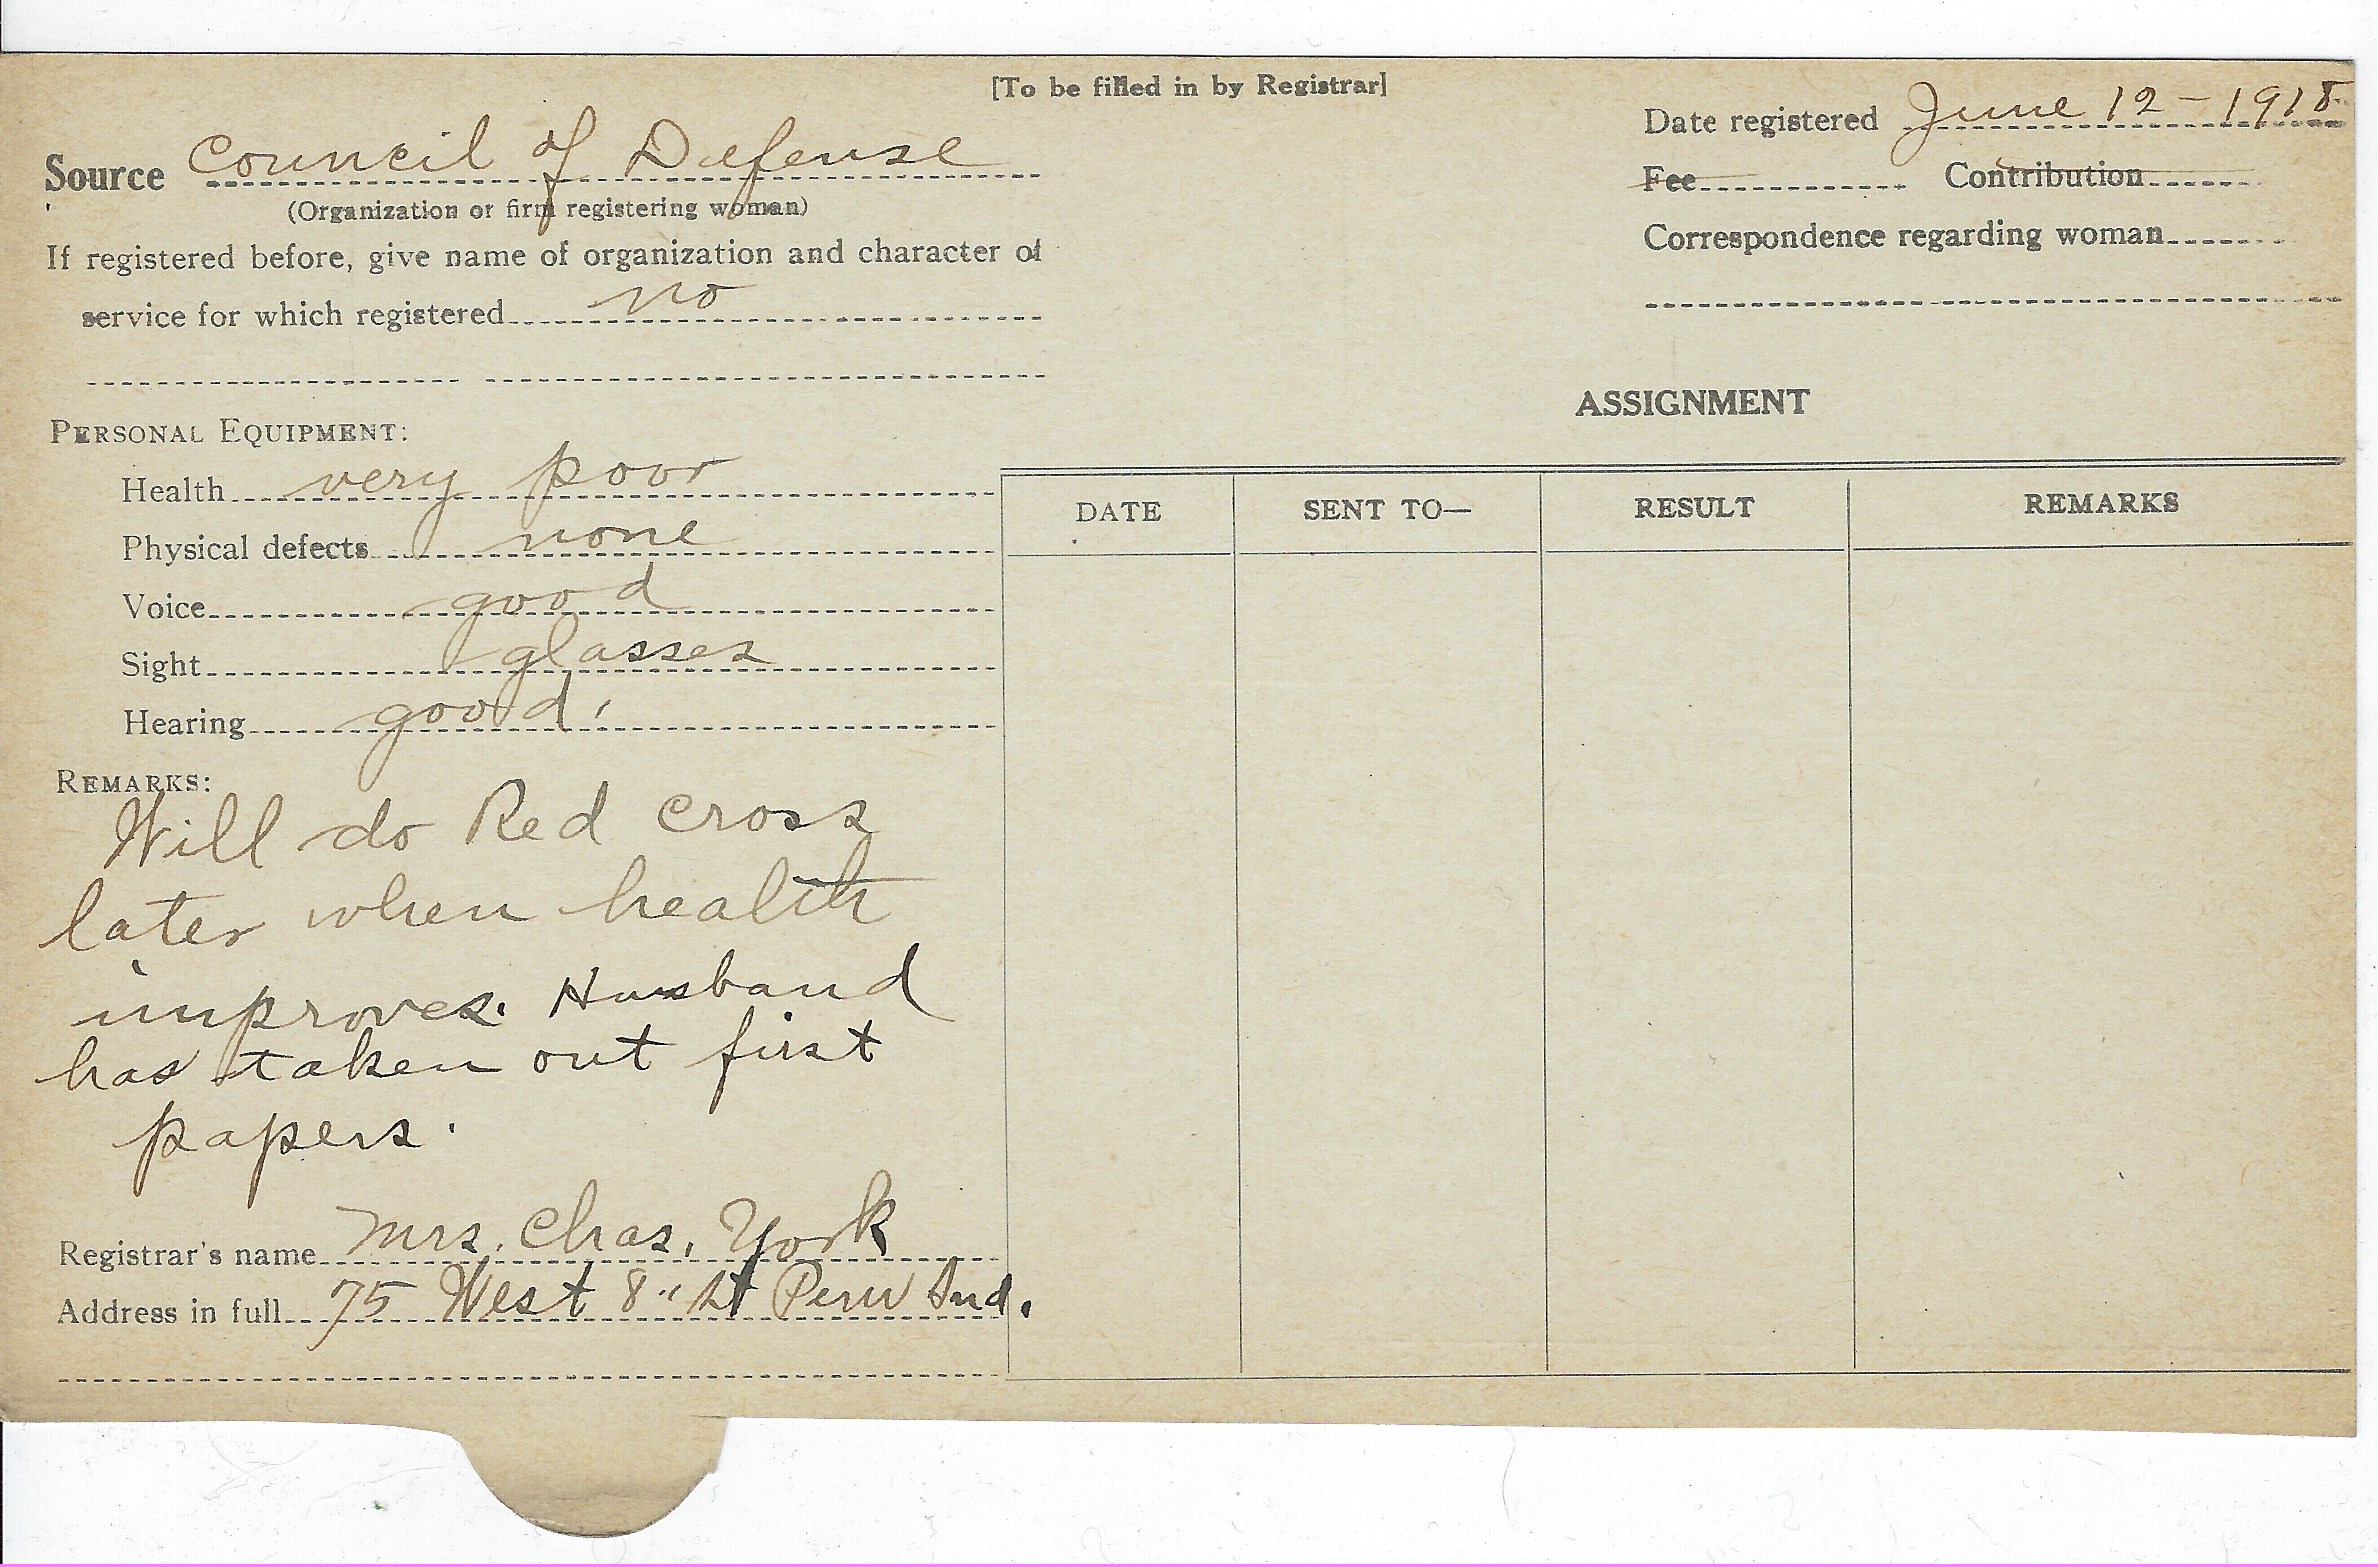 [To be filled in by Registrar]
Date registered June 12 - 1918
Source Council of Defense
(Organization or firm registering woman)
Fee Contribution
Correspondence regarding woman
If registered before, give name of organization and character of
service for which registered no
ASSIGNMENT
PERSONAL EQUIPMENT:
Health very poor
Physical defects none
Voice good
Sight glasses
Hearing good
DATE SENT TO— RESULT REMARKS
REMARKS:
Will do Red Cross
later when health
improves. Husband
has taken out first
papers.
Registrar's name Mrs. Chas. York
Address in full 75 West 8" St Peru Ind.